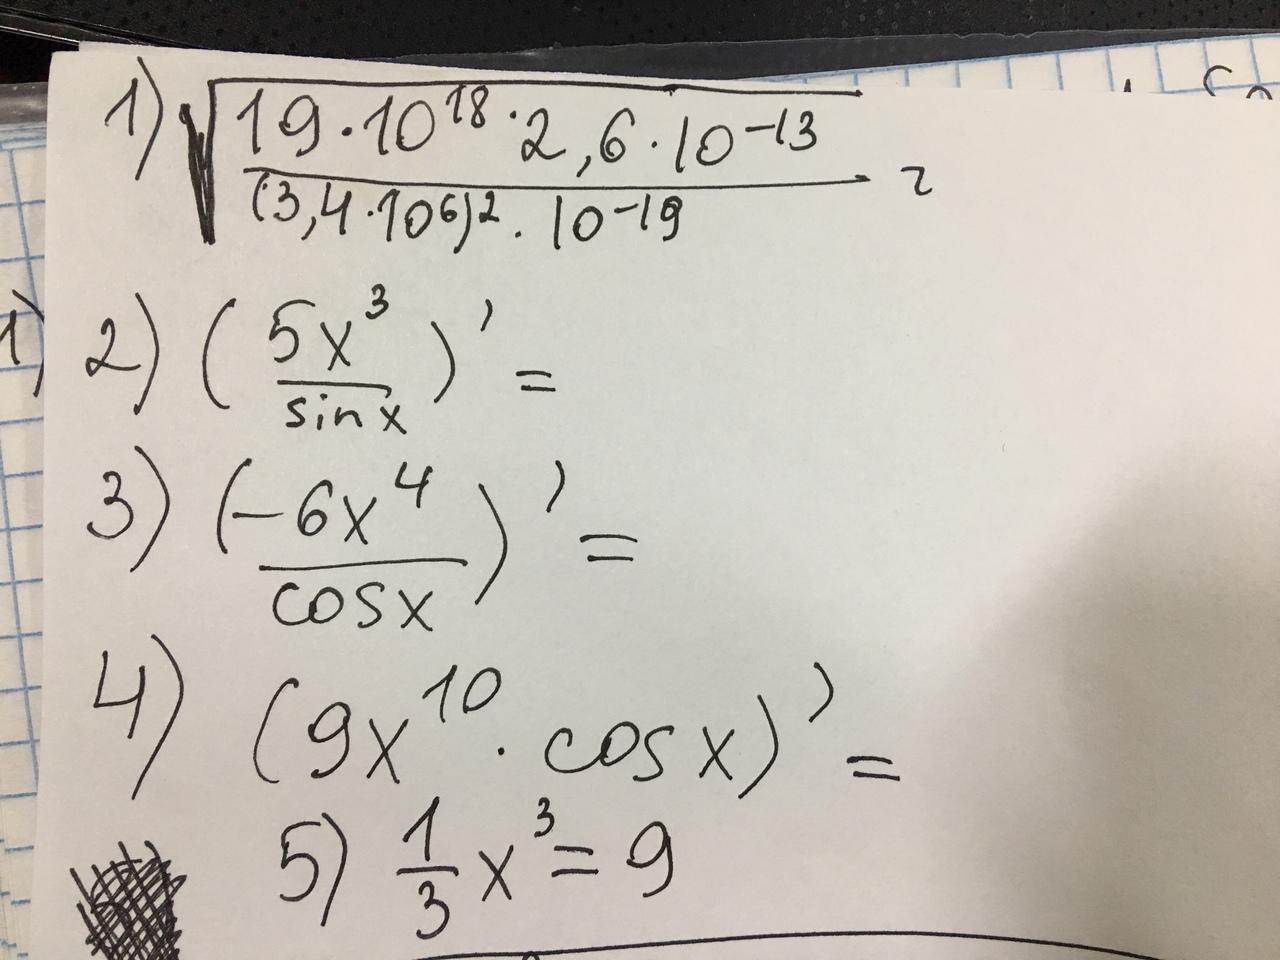 1) √(19·10¹⁸·2,6·10⁻¹³ / (3,4·10⁶)²·10⁻¹⁹) =
2) (5x³ / sin x)' =
3) (-6x⁴ / cosx)' =
4) (9x¹⁰ · cosx)' =
5) 1/3 x³ = 9
1)